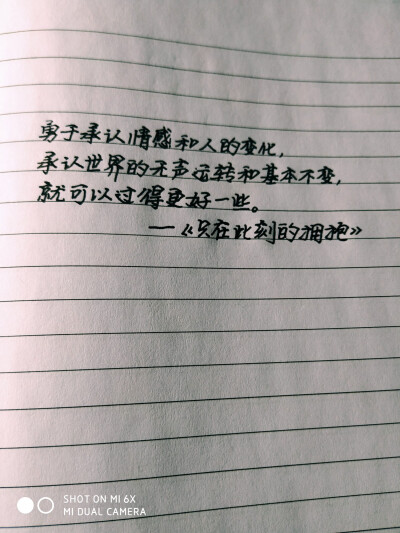 勇于承认情感和人的变化，
承认世界的无声运转和基本不变，
就可以过得更好一些。
——《只在此刻的拥抱》
SHOT ON MI 6X
MI DUAL CAMERA